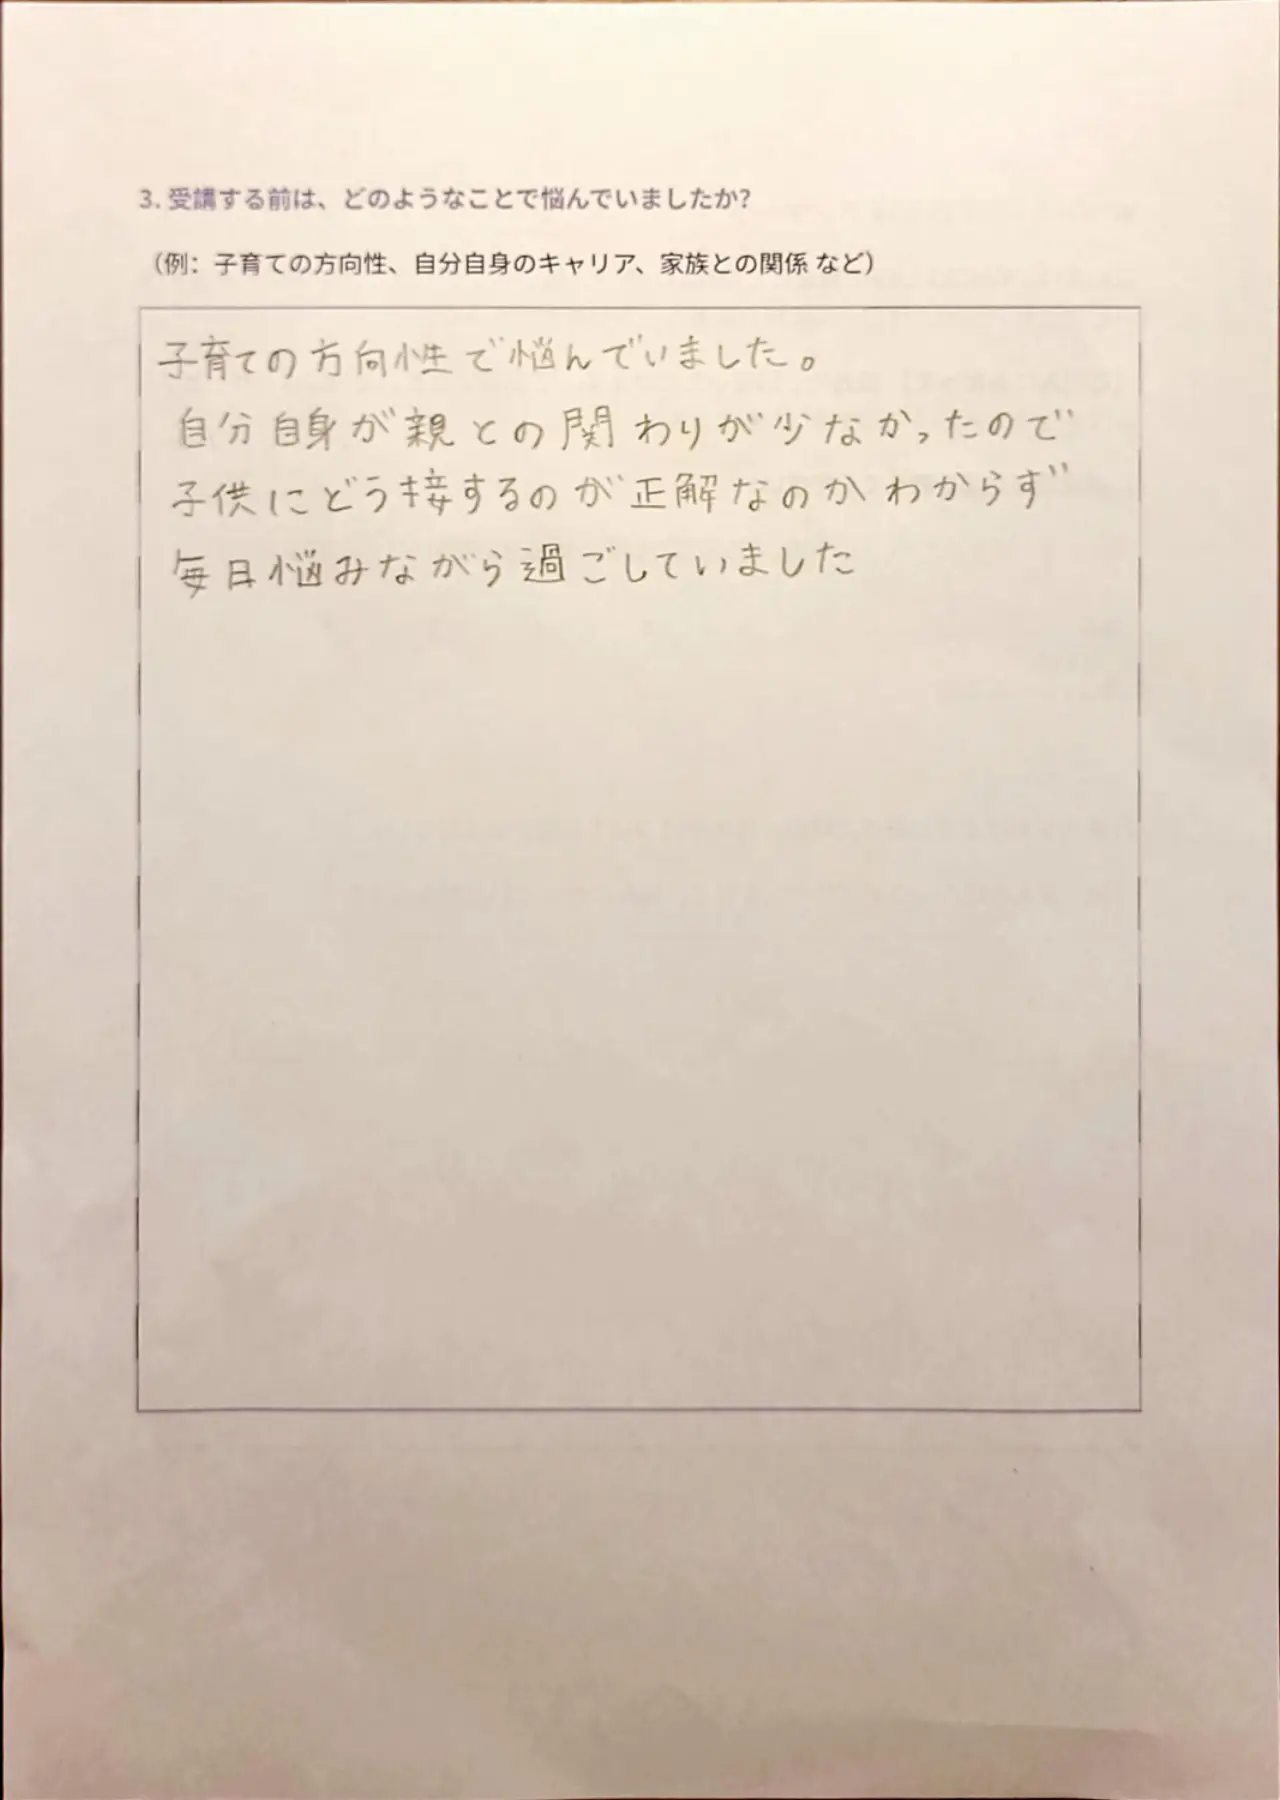 3. 受講する前は、どのようなことで悩んでいましたか?
（例：子育ての方向性、自分自身のキャリア、家族との関係 など）
子育ての方向性で悩んでいました。
自分自身が親との関わりが少なかったので
子供にどう接するのが正解なのかわからず
毎日悩みながら過ごしていました